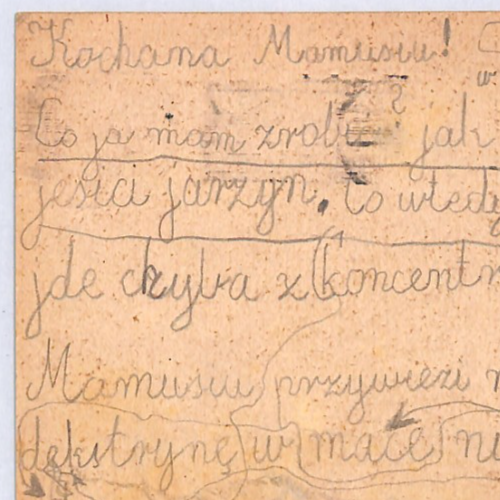 Kochana Mamusiu!
Co ja mam zrobić? jak
jeści jarzyn. to wtedy
jde chyba z koncentr
Mamusiu przywieź
dekstrynę w mące na